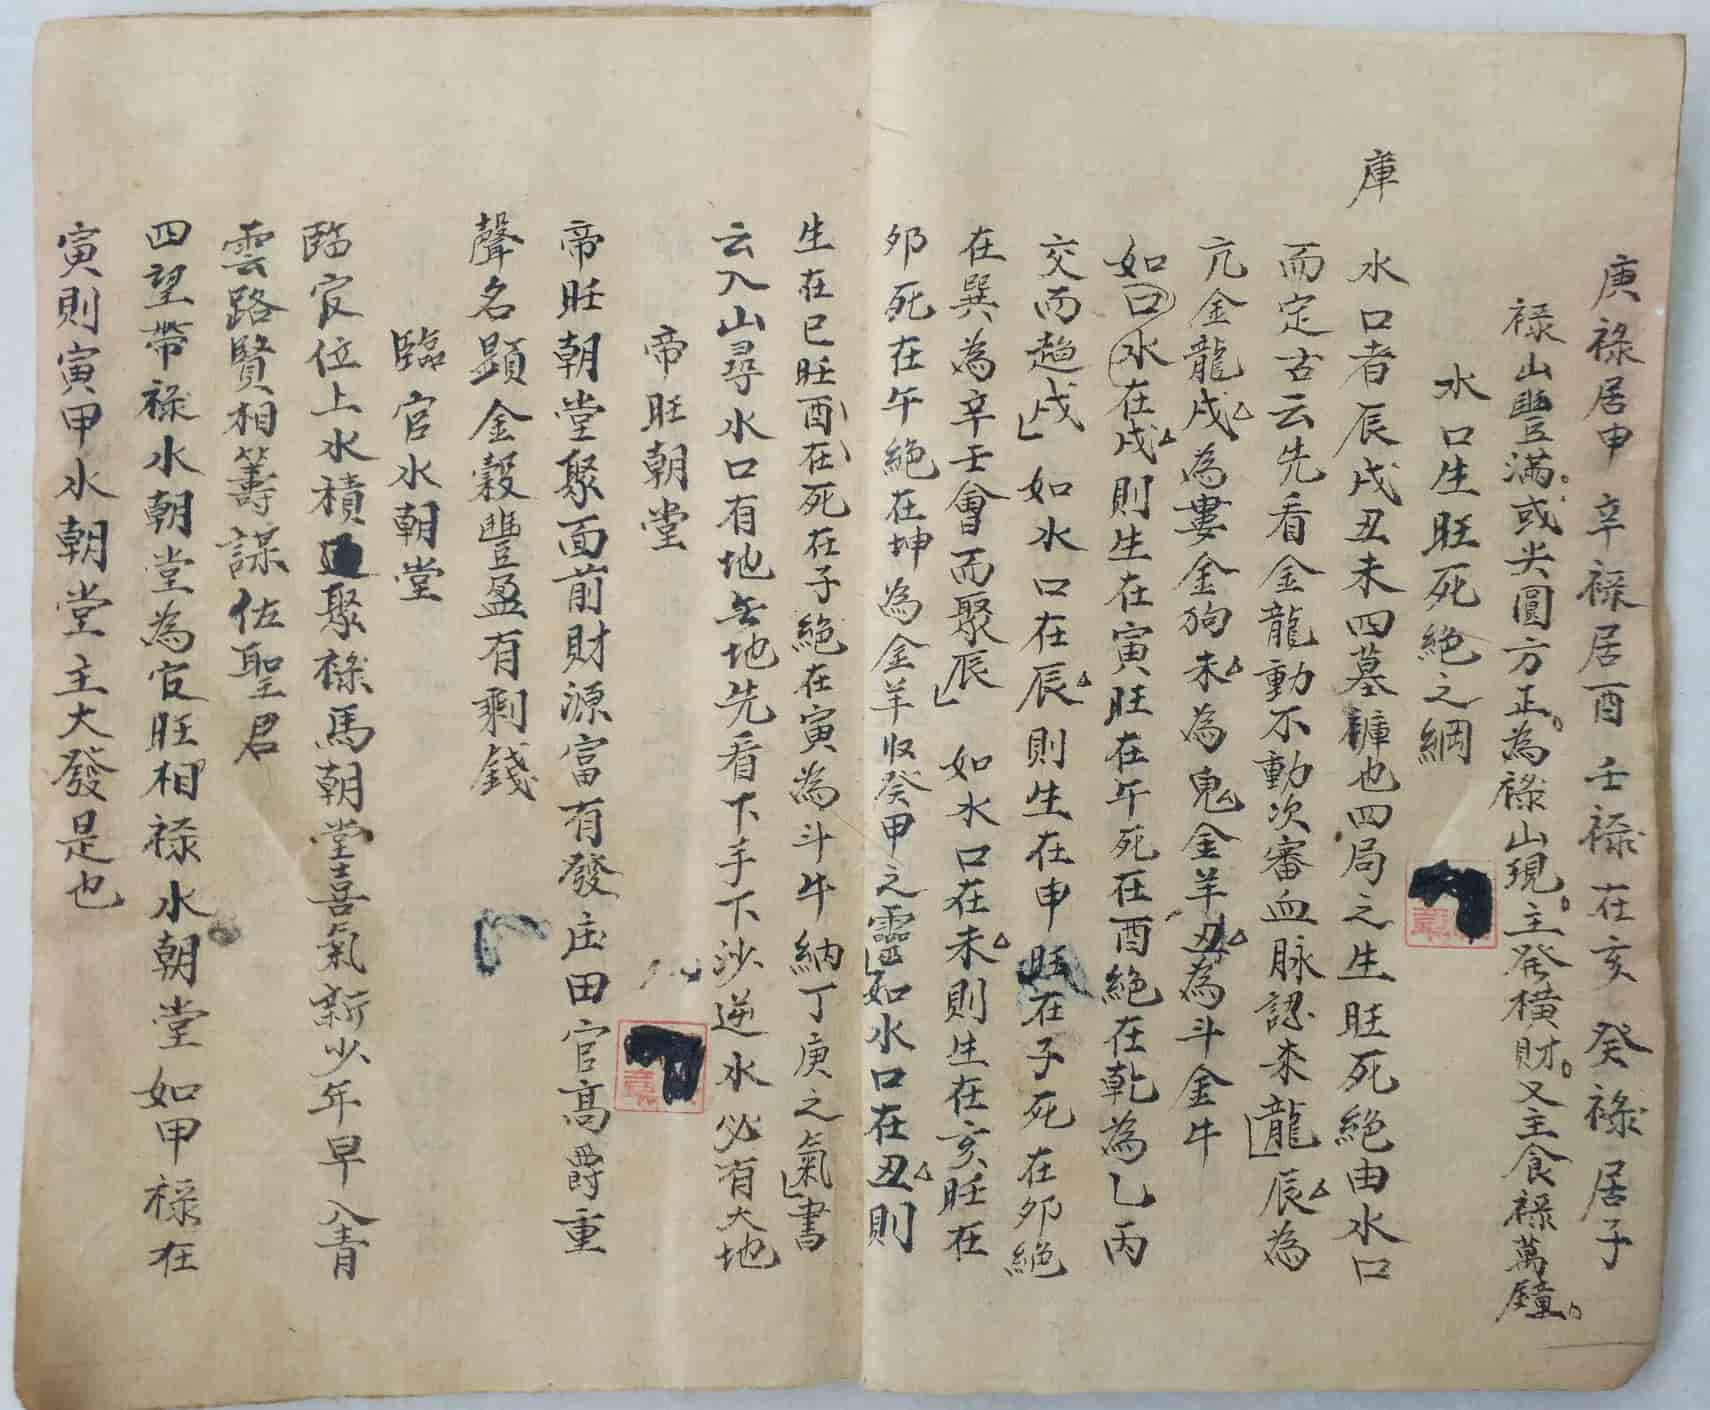 庚祿居申 辛祿居酉 壬祿在亥 癸祿居子
祿山豐滿或尖圓方正為祿山現主發橫財又主食祿萬鐘
水口生旺死絕之綱
庫
水口者辰戌丑未四墓褲也四局之生旺死絕由水口
而定古云先看金龍動不動次審血脉認来龍辰為
亢金龍戌為婁金狗未為鬼金羊丑為斗金牛
如口水在戌則生在寅旺在午死在酉絕在乾為乙丙
交而趨戌 如水口在辰則生在申旺在子死在夘絕
在巽為辛壬會而聚辰 如水口在未則生在亥旺在
夘死在午絕在坤為金羊收癸甲之靈如水口在丑則
生在巳旺酉在死在子絕在寅為斗牛納丁庚之氣書
云入山尋水口有地无地先看下手下沙逆水必有大地
帝旺朝堂
帝旺朝堂聚面前財源富有發庄田官高爵重
聲名顕金穀豐盈有剩錢
臨官水朝堂
臨官位上水積聚祿馬朝堂喜氣新少年早入青
雲路賢相籌謀佐聖君
四望帶祿水朝堂為官旺相祿水朝堂如甲祿在
寅則寅甲水朝堂主大發是也